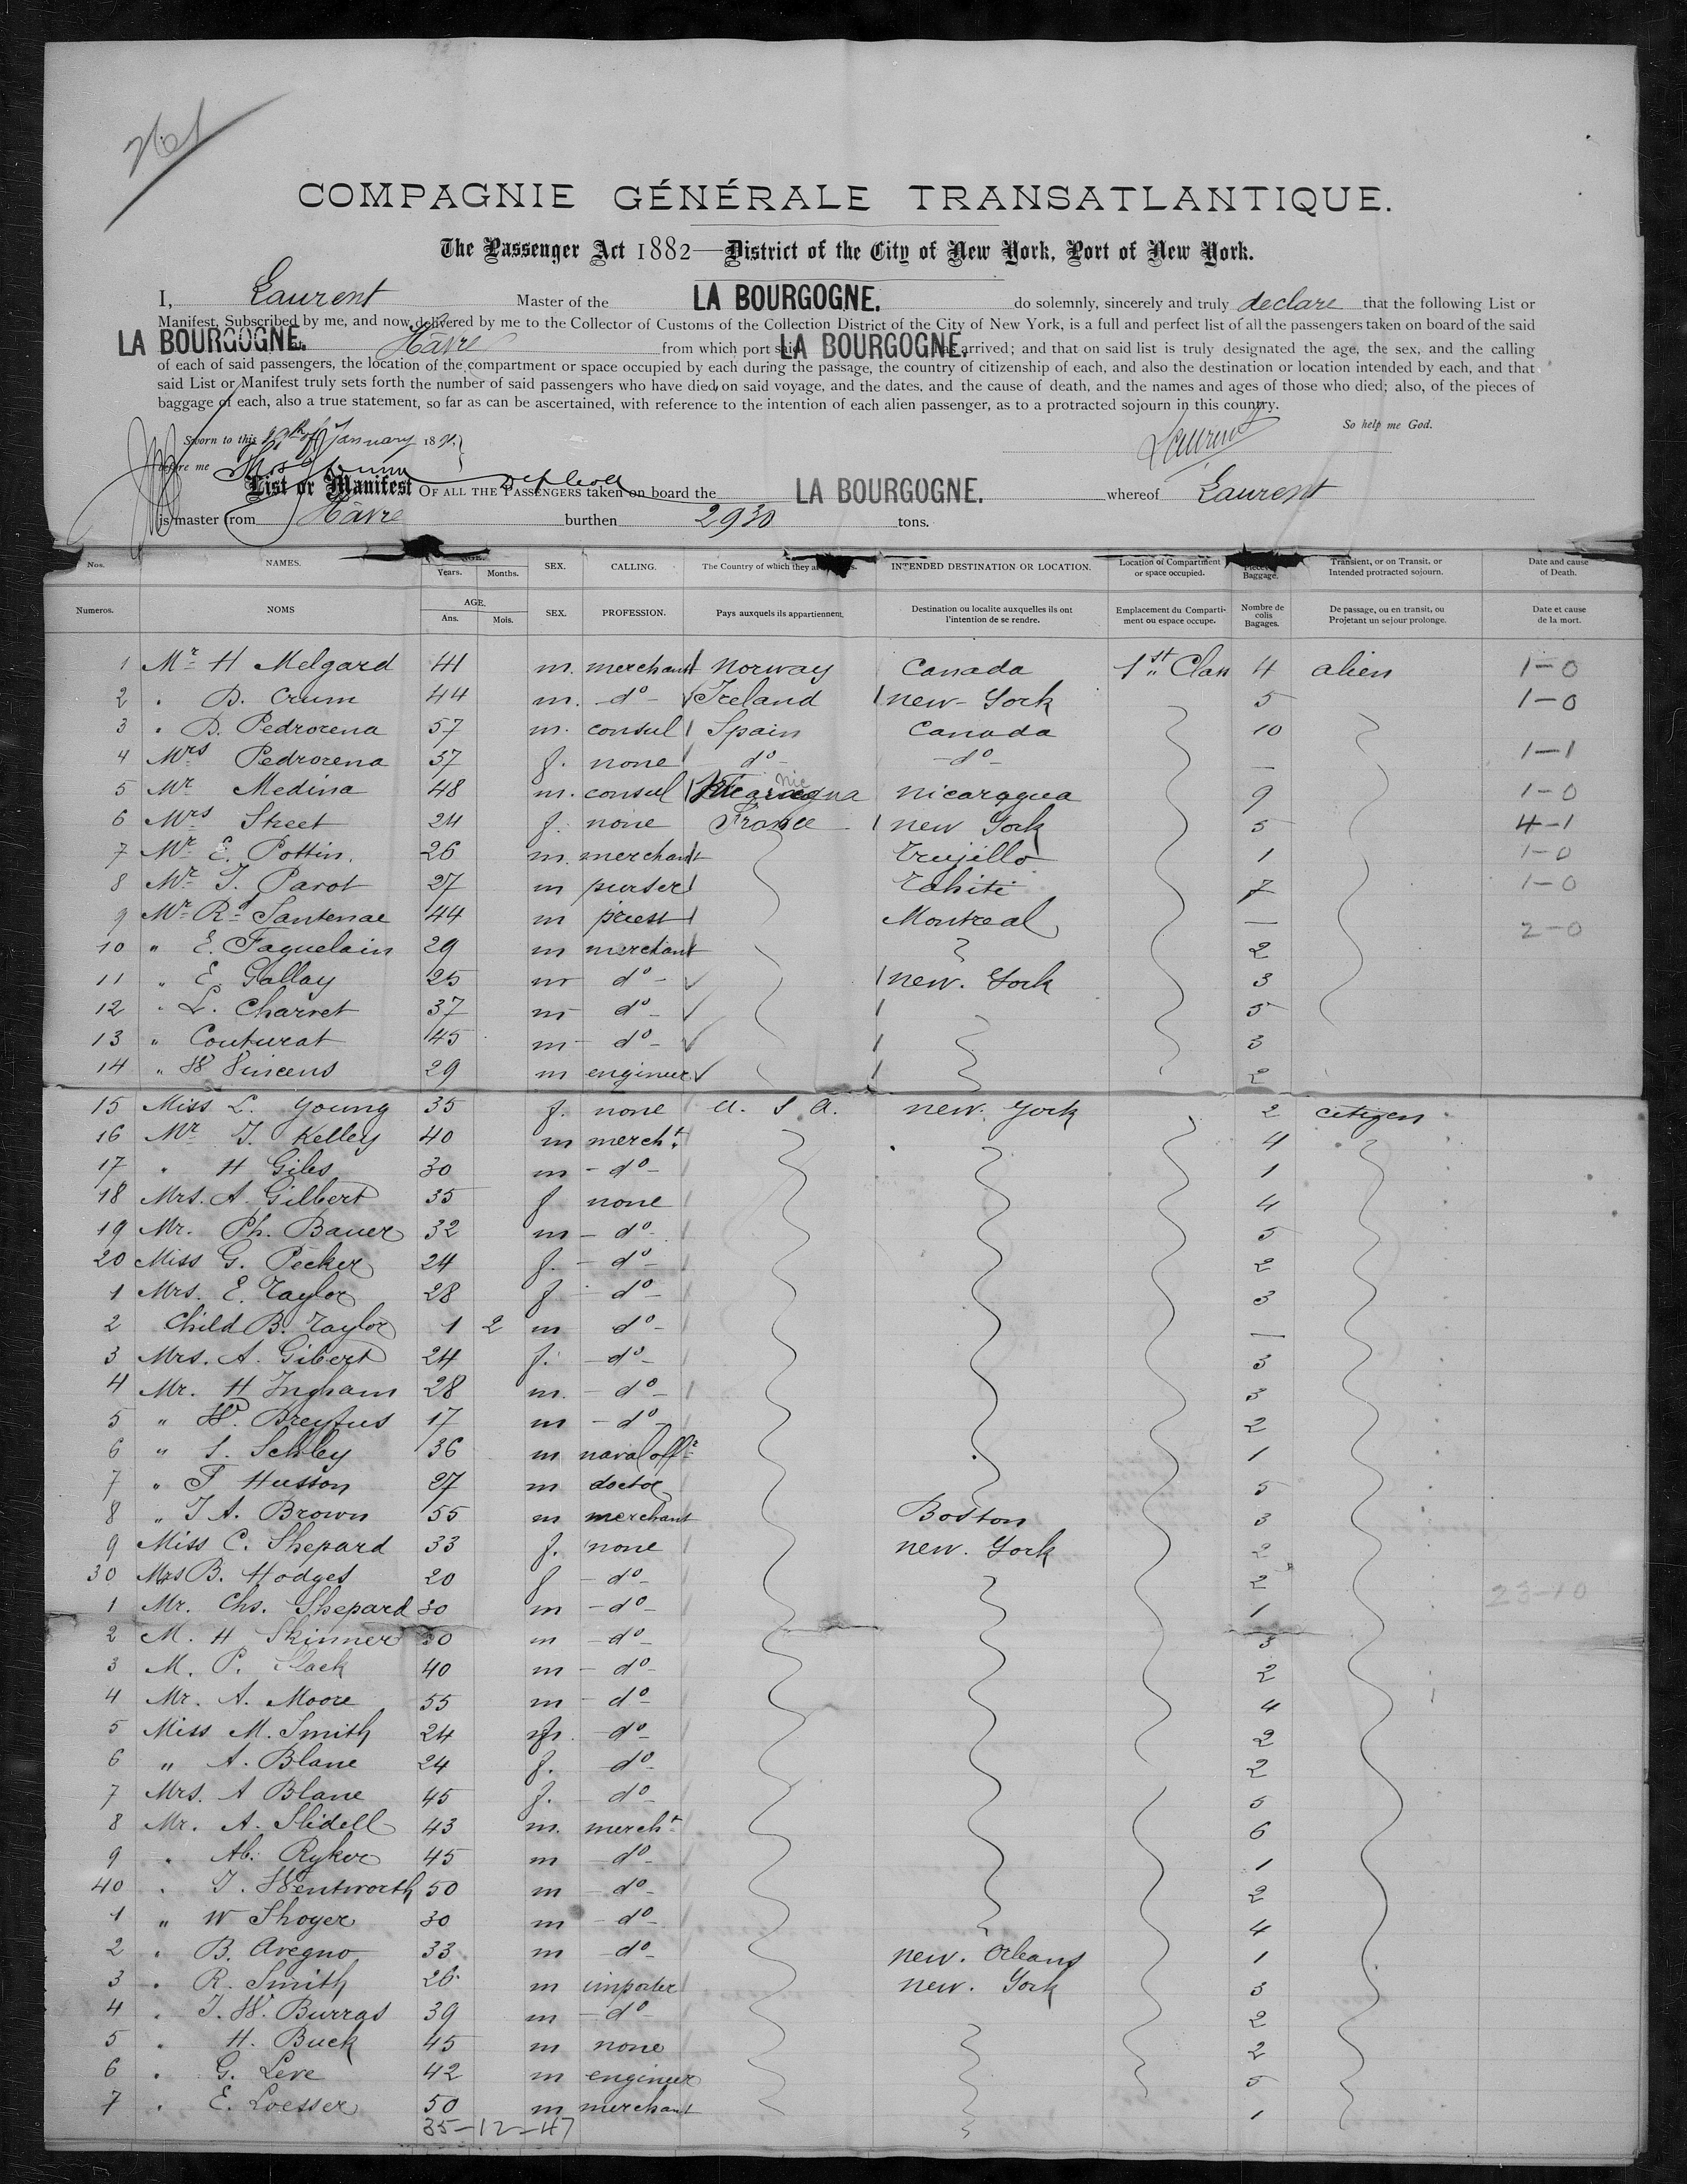 COMPAGNIE GÉNÉRALE TRANSATLANTIQUE.
The Passenger Act 1882—District of the City of New York, Port of New York.
I, Laurent Master of the LA BOURGOGNE. do solemnly, sincerely and truly declare that the following List or
Manifest, Subscribed by me, and now delivered by me to the Collector of Customs of the Collection District of the City of New York, is a full and perfect list of all the passengers taken on board of the said
LA BOURGOGNE. Havre from which port said LA BOURGOGNE. has arrived; and that on said list is truly designated the age, the sex, and the calling
of each of said passengers, the location of the compartment or space occupied by each during the passage, the country of citizenship of each, and also the destination or location intended by each, and that
said List or Manifest truly sets forth the number of said passengers who have died on said voyage, and the dates, and the cause of death, and the names and ages of those who died; also, of the pieces of
baggage of each, also a true statement, so far as can be ascertained, with reference to the intention of each alien passenger, as to a protracted sojourn in this country.
So help me God.
Sworn to this January 189
Laurent
before me
List or Manifest OF ALL THE PASSENGERS taken on board the LA BOURGOGNE. whereof Laurent
is master from Havre burthen 2930 tons.
Nos. NAMES. AGE. Years. Months. SEX. CALLING. The Country of which they are INTENDED DESTINATION OR LOCATION. Location of Compartment or space occupied. Pieces Baggage. Transient, or on Transit, or Intended protracted sojourn. Date and cause of Death.
Numeros. NOMS AGE. Ans. Mois. SEX. PROFESSION. Pays auxquels ils appartiennent. Destination ou localite auxquelles ils ont l'intention de se rendre. Emplacement du Comparti-ment ou espace occupe. Nombre de colis Bagages. De passage, ou en transit, ou Projetant un sejour prolonge. Date et cause de la mort.
1 Mr H Melgard 41 m. merchant Norway Canada 1st Class 4 alien 1-0
2 " D. Crum 44 m. do Ireland new-York 5 1-0
3 " D. Pedrorena 57 m. consul Spain Canada 10
4 Mrs Pedrorena 37 f. none do do — 1-1
5 Mr Medina 48 m. consul Nicaragua nicaragua 9 1-0
6 Mrs Street 24 f. none France new York 5 4-1
7 Mr E. Pottin. 26 m. merchant Trujillo 1 1-0
8 Mr J. Parot 27 m purser Tahiti 7 1-0
9 Mr Rd Santenac 44 m priest Montreal — 2-0
10 " E. Faguelain 29 m merchant 2
11 " E. Gallay 25 m do new. York 3
12 " L. Charvet 37 m do 5
13 " Couturat 45 m do 3
14 " W Vincens 29 m engineer 2
15 Miss L. Young 35 f. none U. S A. new. York 2 citizen
16 Mr J. Kelley 40 m mercht. 4
17 " H Giles 30 m do 1
18 Mrs. A. Gilbert 35 f none 4
19 Mr. Ph. Bauer 32 m do 5
20 Miss G. Pecker 24 f. do 2
1 Mrs. E. Taylor 28 f do 3
2 Child B. Taylor 1 2 m do —
3 Mrs. A. Gibert 24 f. do 3
4 Mr. H Ingham 28 m. do 3
5 " W. Dreyfus 17 m do 2
6 " S. Schley 36 m naval offr 1
7 " F Husson 27 m doctor 5
8 " J A. Brown 55 m merchant Boston 3
9 Miss C. Shepard 33 f. none new. York 2
30 Mrs B. Hodges 20 f do 2 23-10
1 Mr. Chs. Shepard 30 m do 1
2 M. H Skinner 30 m do 3
3 M. P. Slack 40 m do 2
4 Mr. A. Moore 55 m do 4
5 Miss M. Smith 24 f. do 2
6 " A. Blane 24 f. do 2
7 Mrs. A Blane 45 f. do 5
8 Mr. A. Slidell 43 m. mercht 6
9 " Ab. Ryker 45 m do 1
40 " J. Wentworth 50 m do 2
1 " W Shoyer 30 m do 4
2 " B. Avegno 33 m do new. Orleans 1
3 " R. Smith 26 m importer new. York 3
4 " J. W. Burras 39 m do 2
5 " H. Buck 45 m none 2
6 " G. Leve 42 m engineer 5
7 " E. Loesser 50 m merchant 1
35-12-47